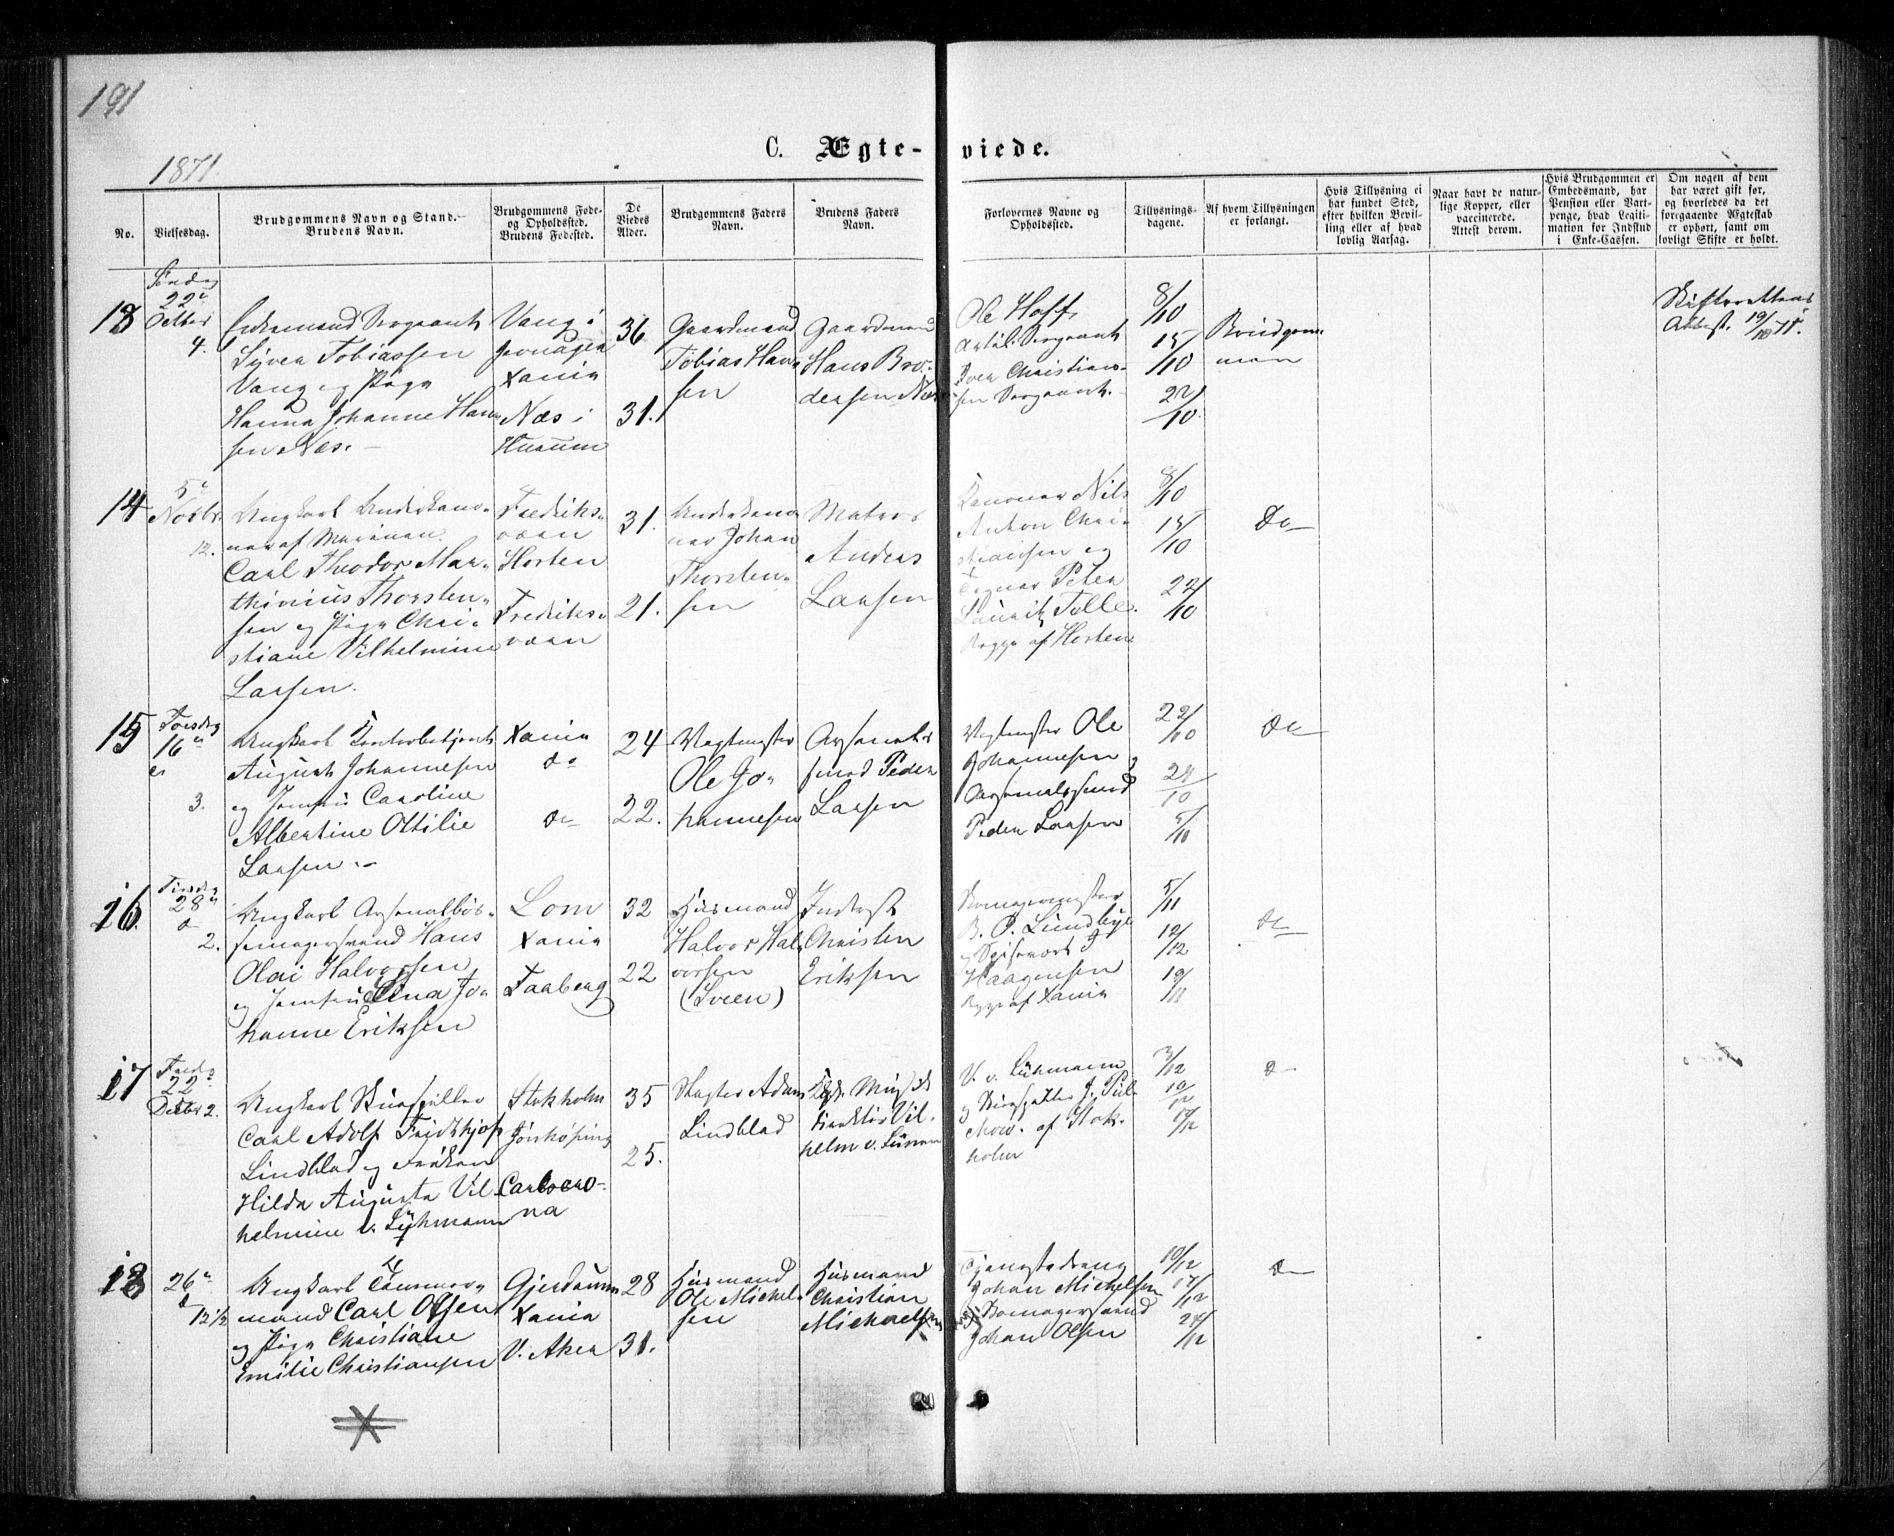 191
1871.
C. Ægte-viede.
No.
Vielsesdag.
Brudgommens Navn og Stand.
Brudens Navn.
Brudgommens Føde-
og Opholdssted.
Brudens Fødested.
De
Viedes
Alder.
Brudgommens Faders
Navn.
Brudens Faders
Navn.
Forlovernes Navne og
Opholdssted.
Tillysnings-
dagene.
Af hvem Tillysningen
er forlangt.
Hvis Tillysning ei
har fundet Sted,
efter hvilken Bevil-
ling eller af hvad
lovlig Aarsag.
Naar havt de natur-
lige Kopper, eller
vaccinerede.
Attest derom.
Hvis Brudgommen er
Embedsmand, har
Pension eller Vart-
penge, hvad Legiti-
mation for Indskud
i Enke-Cassen.
Om nogen af dem
har været gift før,
og hvorledes da det
foregaaende Ægteskab
er ophørt, samt om
lovligt Skifte er holdt.
13
Søndag
22de
Octber
4.
Enkemand Sergeant
Syver Tobiassen
Vang og Pige
Hanna Johanne Han
sen Næs.
Vang i
Xania
Næs i
Husum
36
31.
Gaardmand
Tobias Han-
sen
Gaardmand
Hans Bro-
dersen Næs
Ole Hoff
Artil. Sergeant
Iver Christian-
sen Sergeant.
8/10
15/10
22/10
Brudgom
men
Skifterettens
Attest. 19/10 71.
14
5te
Novbr.
12.
Ungkarl Underkano-
ner af Marinen
Carl Theodor Mar-
thinius Thorsten-
sen og Pige Chri-
stiane Vilhelmine
Larsen.
Fredriks-
værn
Horten
Fredriks-
værn
31.
21.
Underkano
ner Johan
Thorsten-
sen
Matros
Anders
Larsen
Kanoner Nils
Anton Chri-
stiansen og
Peter
Lauritz Tolle
Begge af Horten
8/10
15/10
22/10
Do
15
Torsdag
16de
3.
Ungkarl Kontorbetjent
August Johannesen
og Jomfru Caroline
Albertine Ottilie
Larsen.
Xania
do
do
24
22.
Vagtmester
Ole Jo-
hannesen
Arsenals
smed Peder
Larsen
Vagtmester Ole
Johannesen og
Arsenalssmed
Peder Larsen
22/10
29/10
5/11
Do
16.
Tirsdag
28de
2.
Ungkarl Arsenalbøs-
semagersvend Hans
Olai Halvorsen
og Jomfru Lina Jo-
hanne Eriksen
Lom
Xania
Faaberg
32
22
Husmand
Halvor Hal
vorsen
(Sveen)
Inderst
Christen
Eriksen
Skomagermester
B. P. Lundbye
Haagensen
Begge af Xania
5/11
12/12
19/11
Do
17
22de
Decbr 2.
Ungkarl Skuespiller
Carl Adolf Fridthjof
Lindblad og Frøken
Hilda Augusta Vil-
helmine v. Lühmann
Stokholm
Jønkøping
Carlscro-
na
35
25.
Slagter Adam
Lindblad
Musik
direktør Vil-
helm v. Lüman
V. v. Lühmann
og Skuespiller J.
af Stok-
holm
3/12
10/12
17/12
Do
18
26de
12 1/2
Ungkarl Tømmer-
mand Carl Olsen
og Pige Christiane
Emilie Christiansen
Gjerdrum
Xania
V. Aker
28
31.
Husmand
Ole Michel-
sen
Husmand
Christian
Michaelsen
Tjenestedreng
Johan Michelsen
Skomagersvend
Johan Olsen
10/12
17/12
24/12
Do